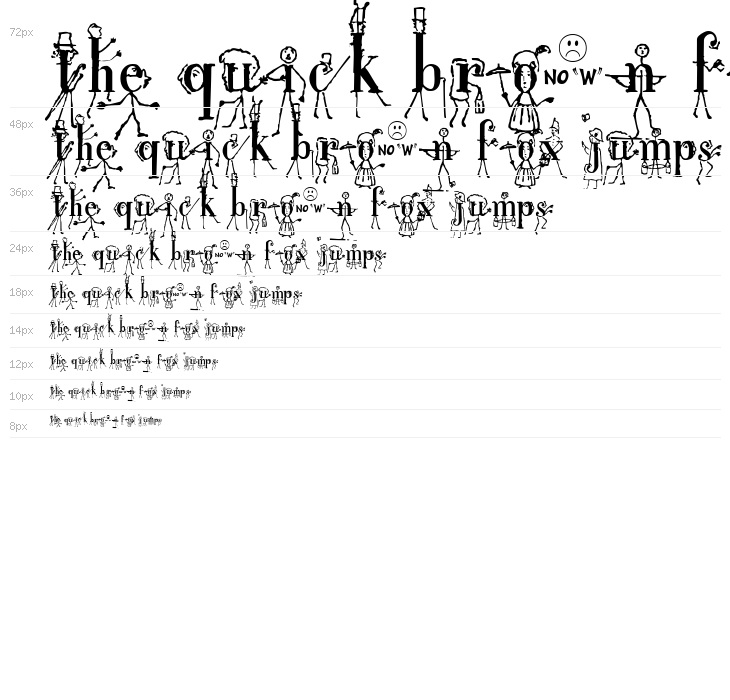 72px the quick bro NO "W" n f
48px the quick bro NO "W" n fox jumps
36px the quick bro NO "W" n fox jumps
24px the quick bro NO "W" n fox jumps
18px the quick bro NO "W" n fox jumps
14px the quick bro n fox jumps
12px the quick bro n fox jumps
10px the quick bro n fox jumps
8px the quick bro n fox jumps